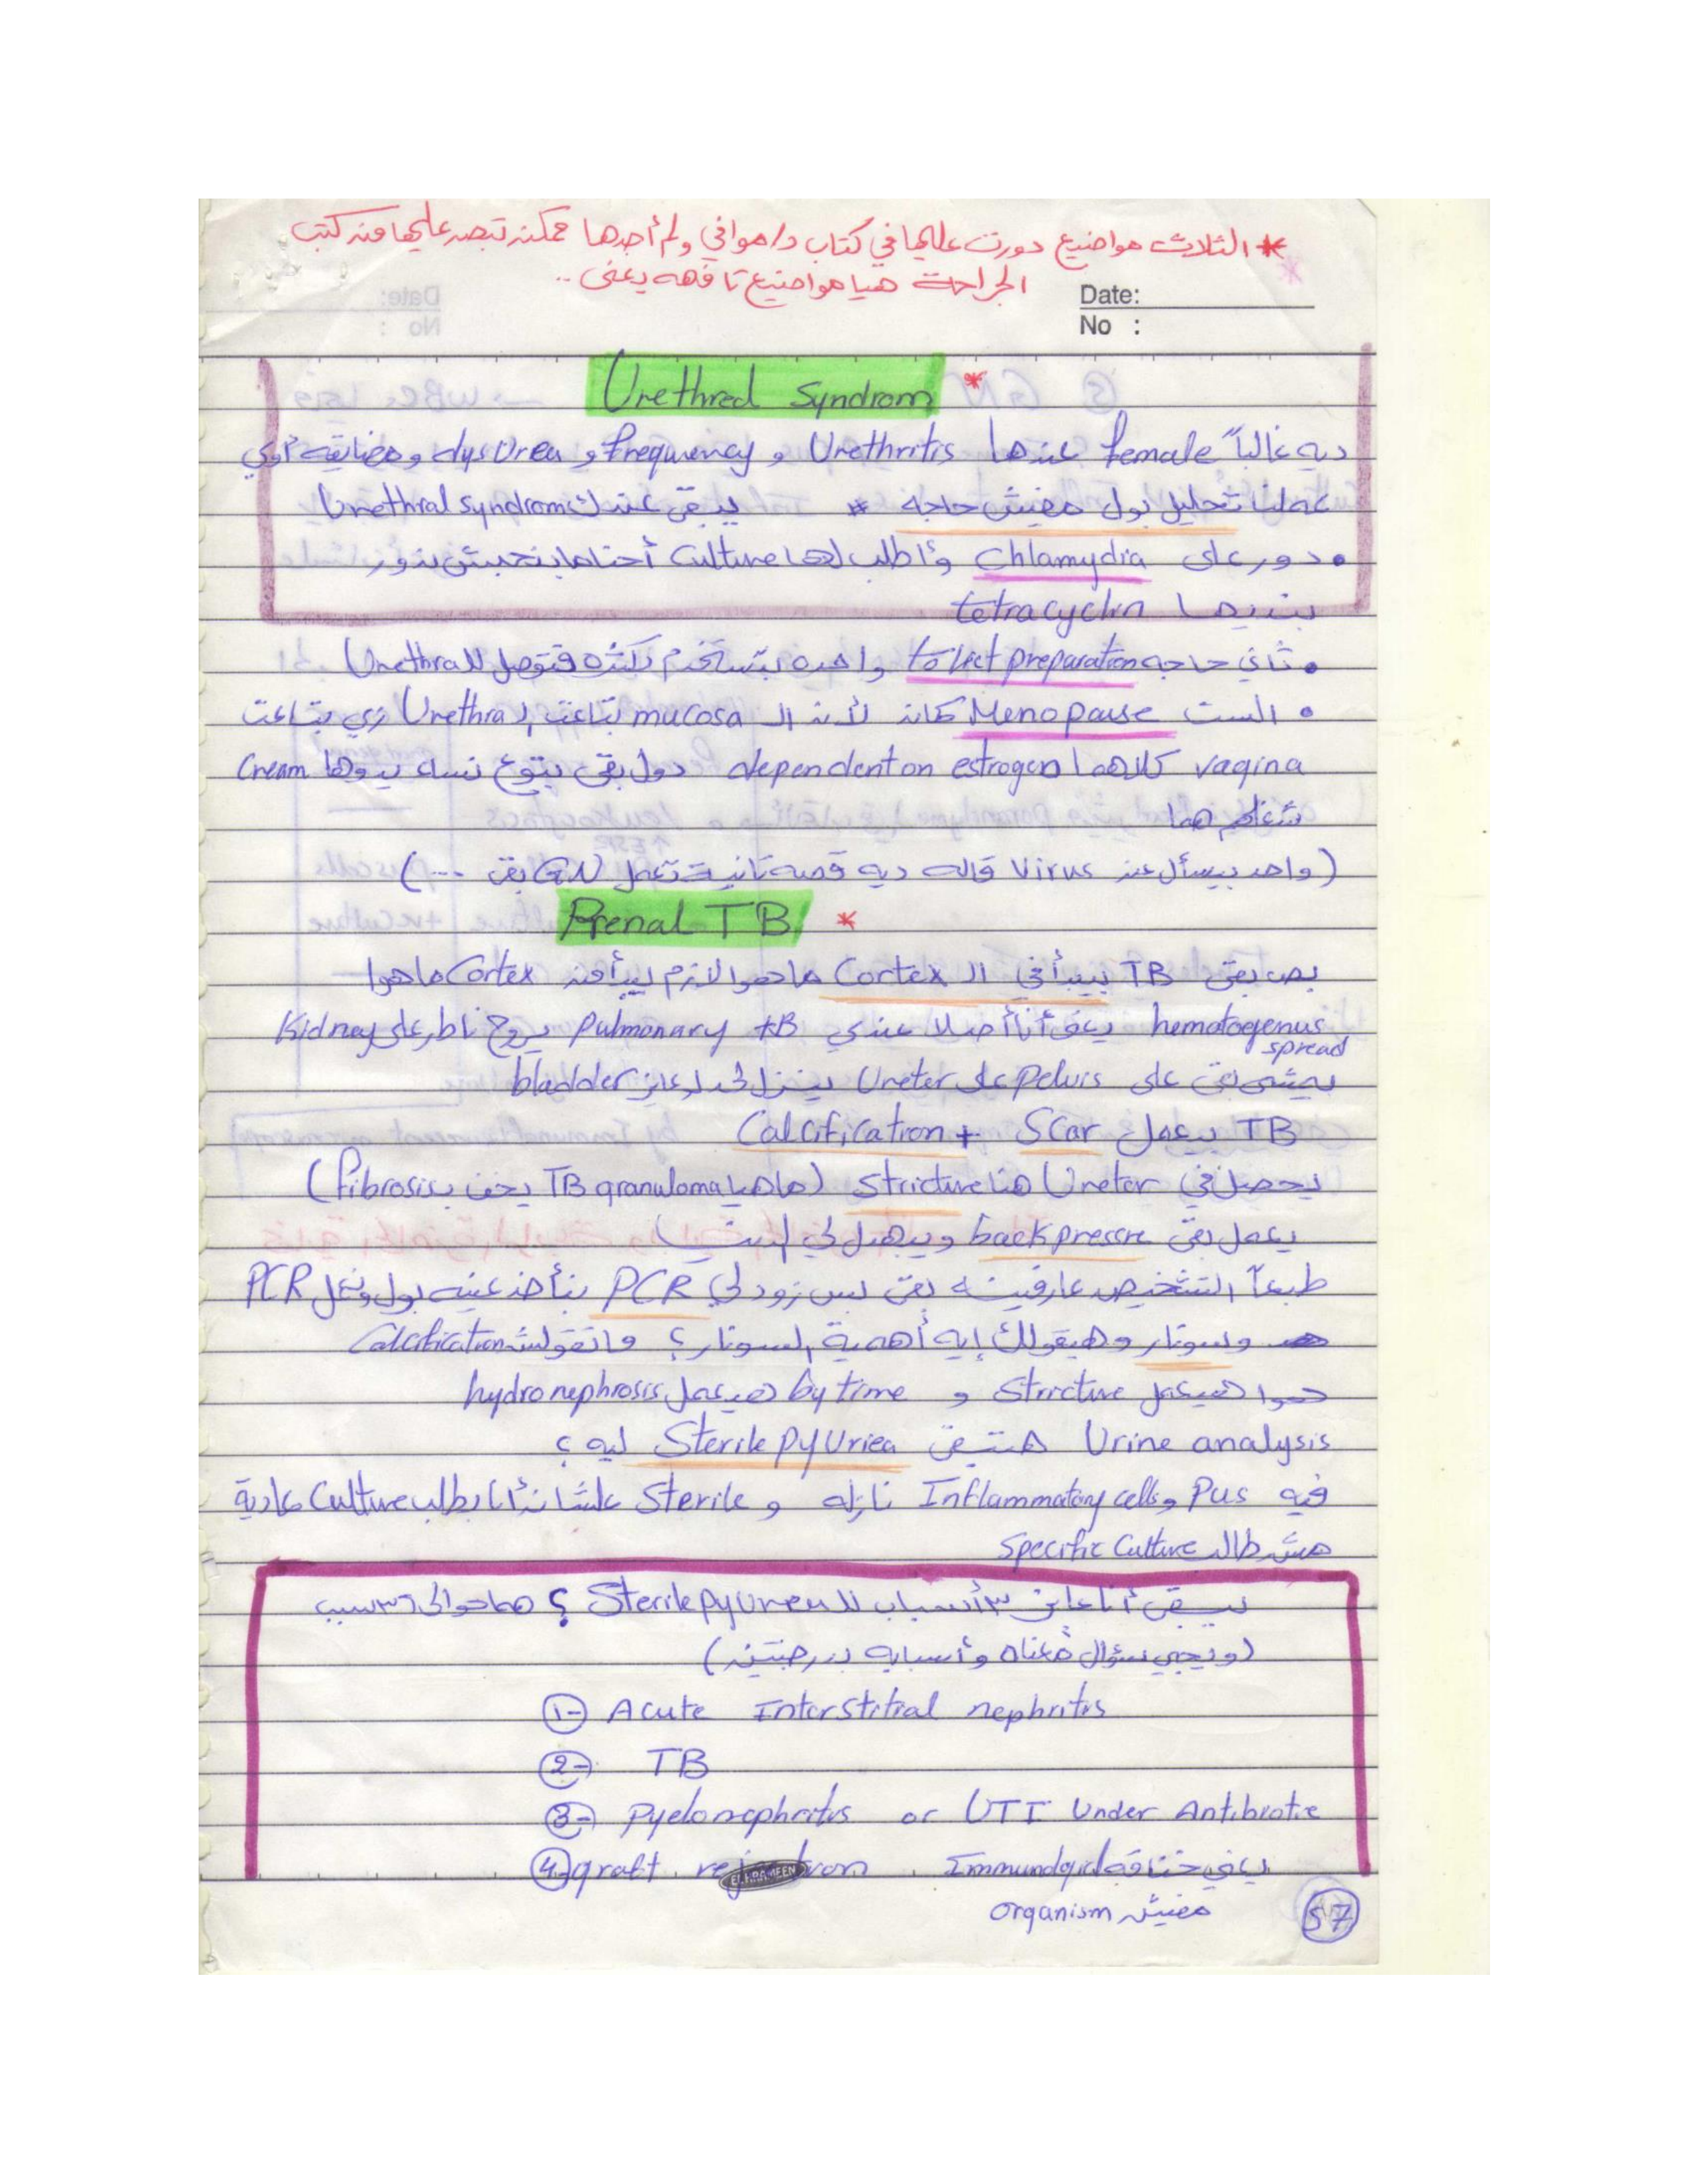 * الثلاث مواضيع دورت عليها في كتاب د/موافي ولم أجدها ممكن تبص عليها من كتب
الجراحة هيا مواضيع تافهه يعنى ..
Date:
No :
Urethred Syndrom *
ديه غالباً female عندها Urethritis و Frequency و dysUrea ومضايقه أوي
عملنا تحليل بول مفيش حاجه # يبقى عندك Urethral syndrom
• دور على Chlamydia وأطلب لها Culture أحنا مابنحبش ندور
بنديها tetracyclin
• ثاني حاجه toilet preparation واحده بتستخدم بكثره فتوصل لل Urethra
• الست Menopause كمان لأن ال mucosa بتاعت ال Urethra زي بتاعت
vagina كلاهما dependent on estrogen دول بقى بتوع نسا يدوها Cream
شغلهم هما
(واحد بيسأل عن Virus قاله ديه قصه تانية تعمل GN بقى ...)
Renal TB *
بص بقى TB بيبدأ في ال Cortex ماهوا لازم يبدأ من Cortex ماهوا
hematogenus يعنى أنا أصلا عندي Pulmonary TB يروح ناطر على Kidney
spread
يمشى بقى على Pelvis على Ureter ينزل لحد لو عايز bladder
TB بيعمل Scar + Calcification
يحصل في Ureter هنا Stricture (ماهيا TB granuloma يخف بـ Fibrosis)
يعمل بقى back pressre ويبهدل لي الدنيا
طبعاً التشخيص عارفينه بقى بس زود لي PCR بنأخذ عينه بول ونعمل PCR
وسونار وهيقولك إيه أهمية السونار؟ ماتقولش Calcification
هوا هيعمل Stricture و by time هيعمل hydronephrosis
Urine analysis هتبقى Sterile pyUriea ليه؟
فيه Pus و Inflammatory cells نازله و Sterile علشان أنا بطلب Culture عادية
مش طالب Specific Culture
يبقى أنا عايز ٣ أسباب لل Sterile pyUrea ؟ هما حوالى ٣٦ سبب
(ويجي سؤال معناه وأسبابه بدرجتين)
1- Acute Interstitial nephritis
2- TB
3- Pyelonephritis or UTI Under Antibiotic
4- graft rejection يعني خناقه Immunological
مفيش organism
57